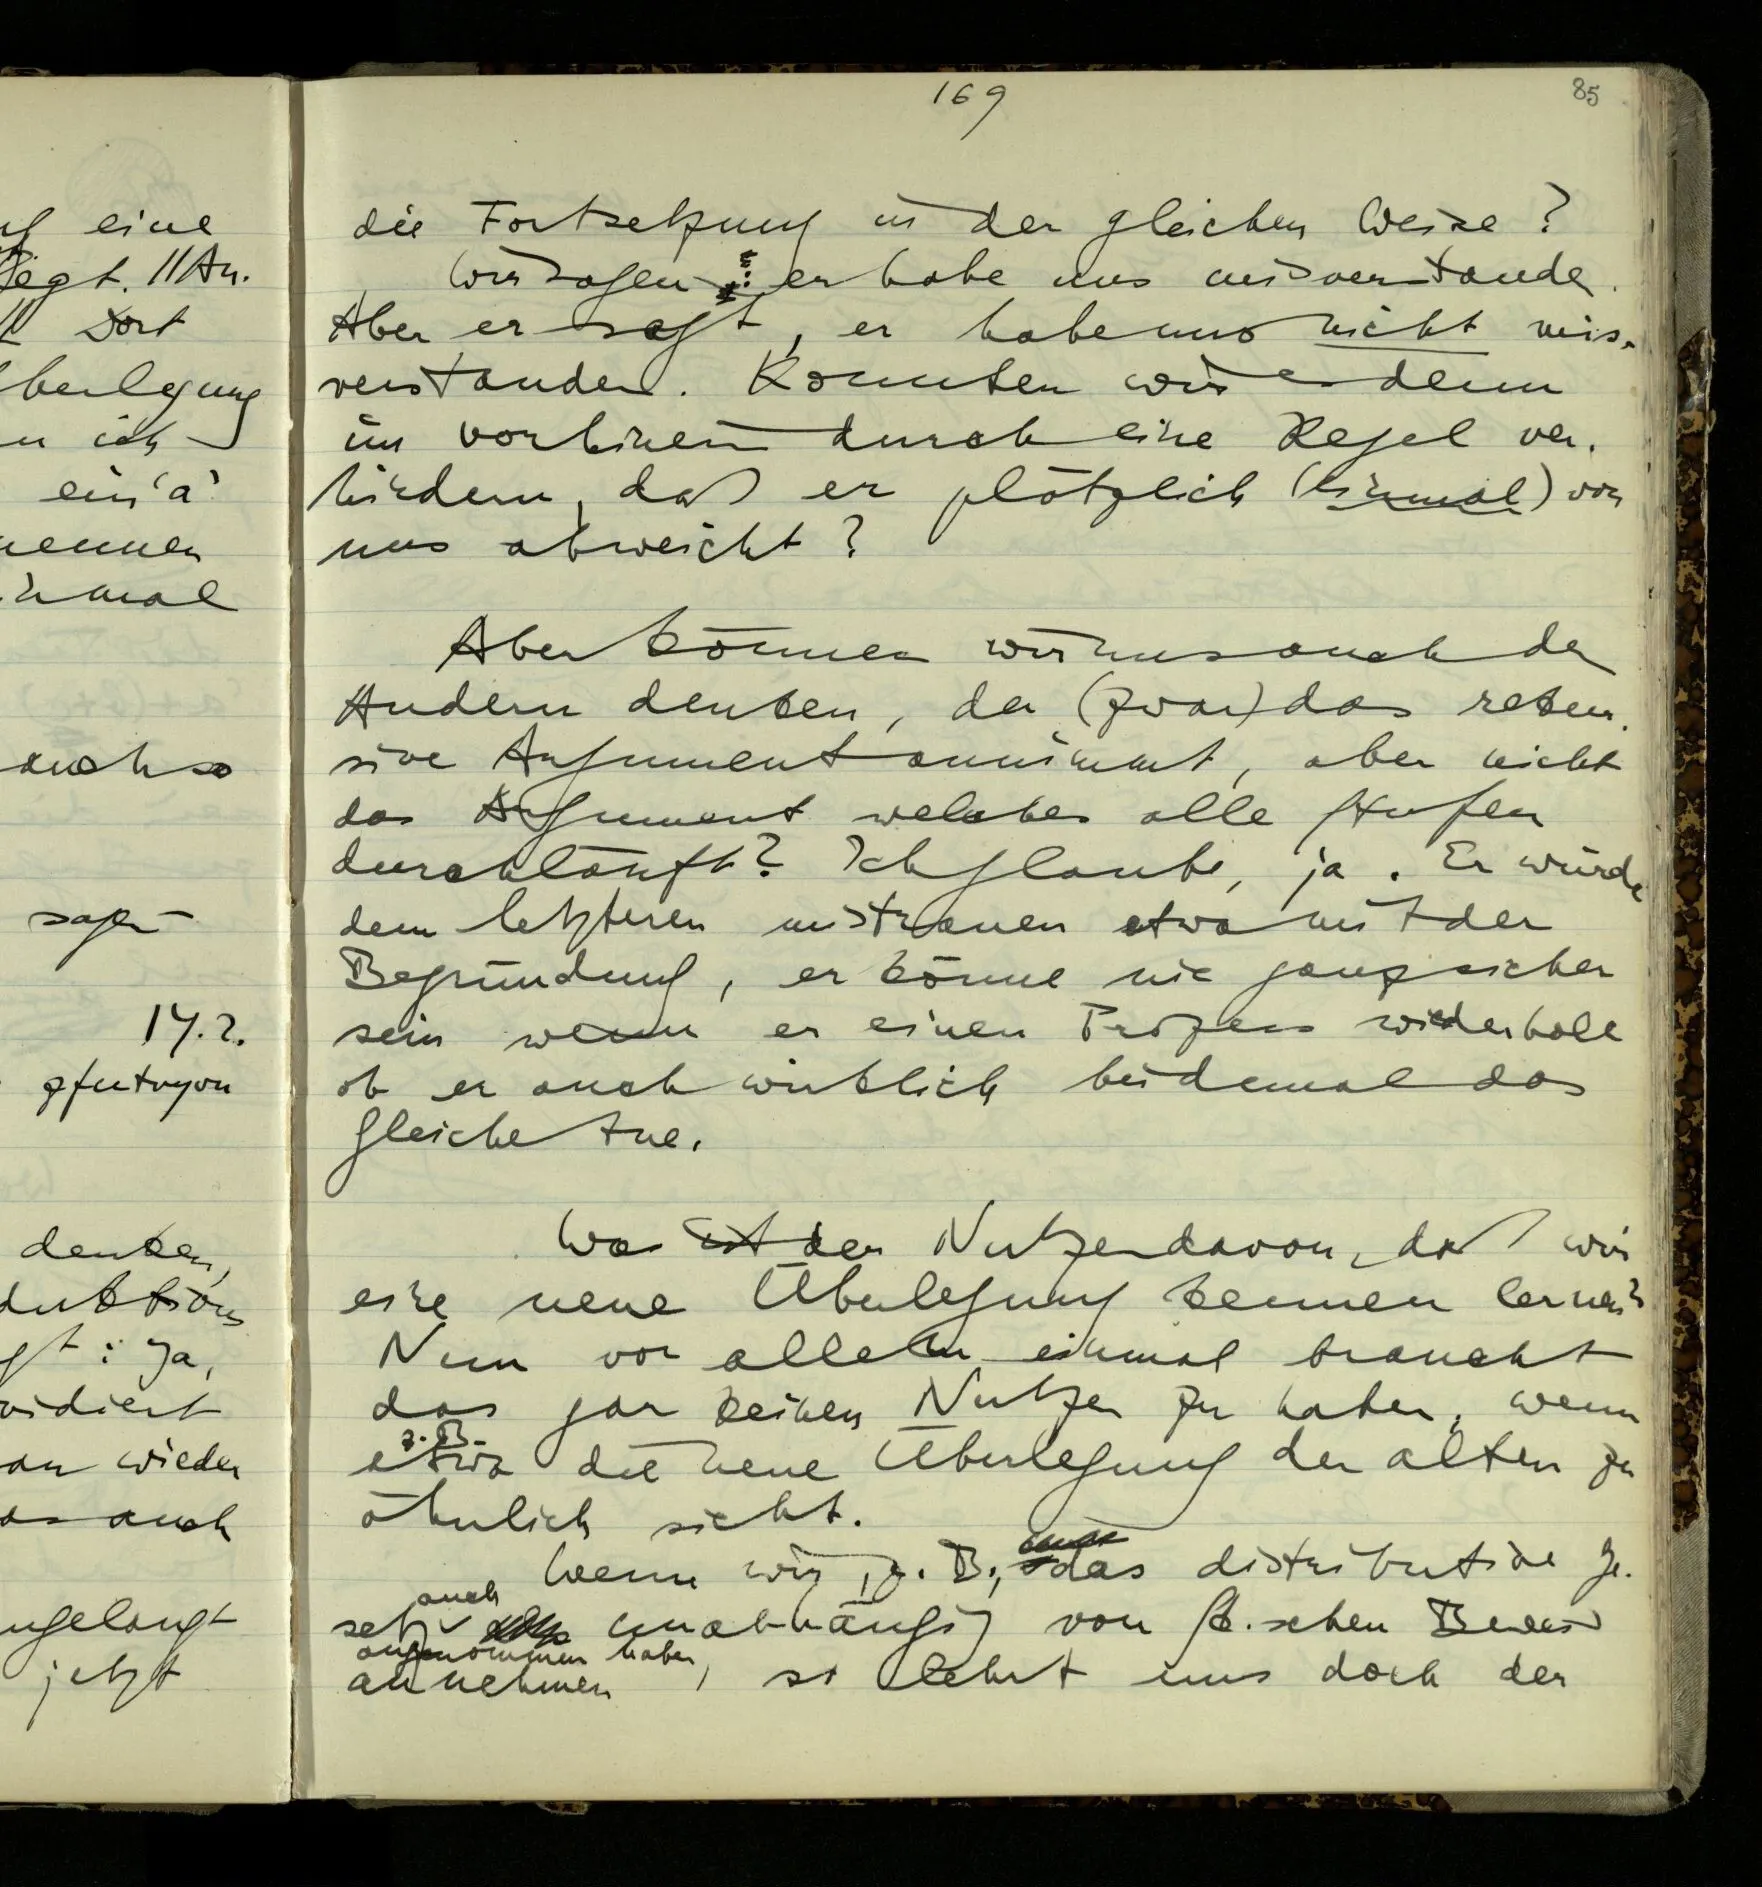 ng eine
liegt. ‖ An.
Dort
berlegung
n ich
ein 'a'
nennen
einmal
auch so
sagen
14.2.
denken,
duktions
gt: Ja,
vidiert
an wieder
as auch
ngelangt
jetzt
169
85
die Fortsetzung in der gleichen Weise?
Wir sagen: er habe uns misverstanden.
Aber er sagt, er habe uns nicht mis-
verstanden. Konnten wir es denn
im vorhinein durch eine Regel ver-
hindern, daß er plötzlich (einmal) von
uns abweicht?
Aber können wir uns auch den
Andern denken, der (zwar) das rekur-
sive Argument annimmt, aber nicht
das Argument welches alle Stufen
durchläuft? Ich glaube, ja. Er würde
dem letzteren mistrauen etwa mit der
Begründung, er könne nie ganz sicher
sein wenn er einen Prozess wiederhole
ob er auch wirklich beidemal das
Gleiche tue.
Was ist der Nutzen davon, daß wir
eine neue Überlegung kennen lernen?
Nun vor allem einmal braucht
das gar keinen Nutzen zu haben, wenn
z.B.
etwa die neue Überlegung der alten zu
ähnlich sieht.
Wenn wir, z.B., das distributive Ge-
auch
setz unabhängig von Sk.schen Beweis
angenommen haben,
annehmen, so lehrt uns doch der